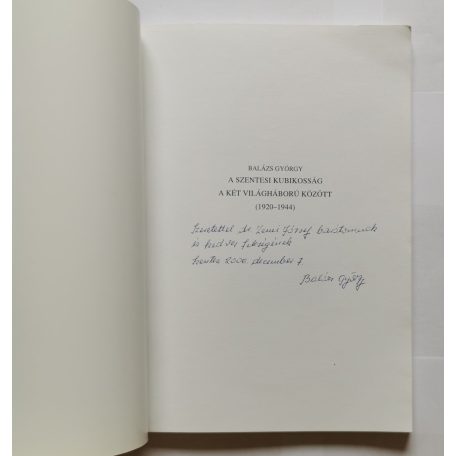 BALÁZS GYÖRGY
A SZENTESI KUBIKOSSÁG
A KÉT VILÁGHÁBORÚ KÖZÖTT
(1920–1944)
Szeretettel Dr József barátomnak
és kedves feleségének
Szentes 2000. december 7
Balázs György